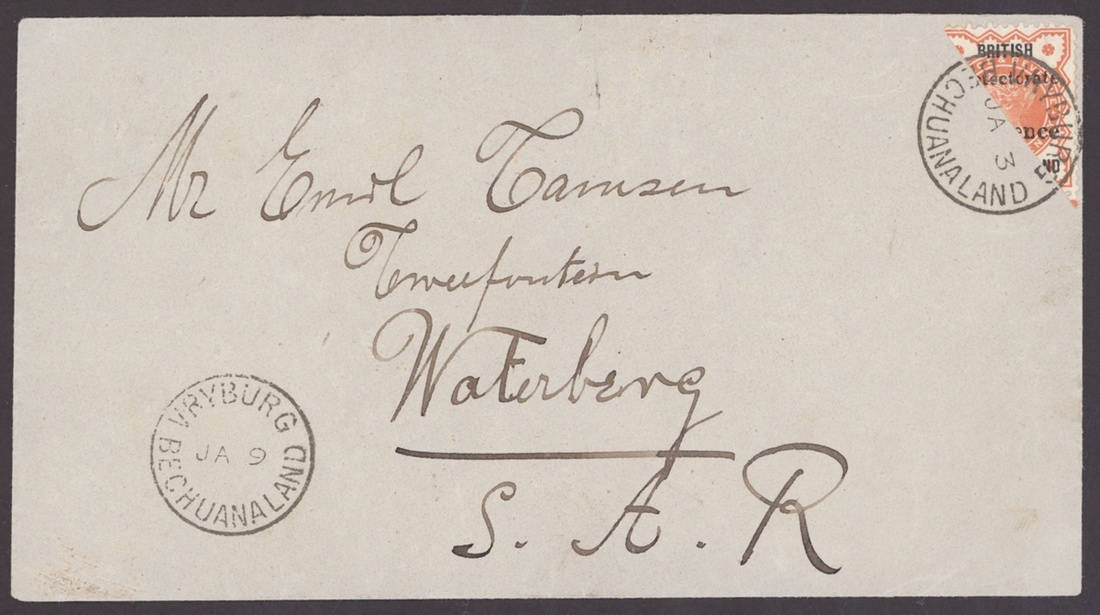 BRITISH
tectorate
ence
VRYBURG
JA 3
BECHUANALAND
Mr Emil Tamsen
Tweefontein
Waterberg
S. A. R
VRYBURG
JA 9
BECHUANALAND